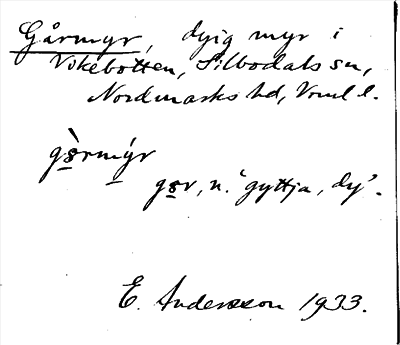 Gårmyr, dyig myr i
Vikebotten, Silbodals sn,
Nordmarks hd, Vrml l.
gò̱rmý̱r
go̱r, n. "gyttja, dy".
E. Andersson 1933.